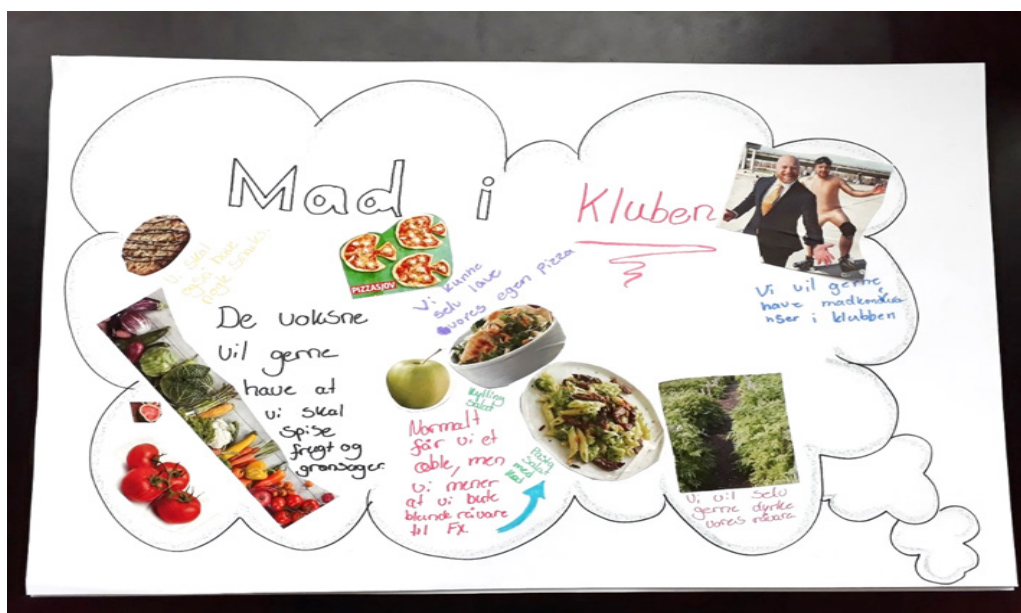 Mad i Kluben
Vi skal
også have
nogle snacks.
PIZZASJOV
Vi kunne
selv lave
vores egen pizza
Vi vil gerne
have madkonkur
nser i klubben
De voksne
vil gerne
have at
vi skal
spise
frugt og
grønsager.
Kylling
Salat
Normalt
får vi et
æble, men
vi mener
at vi bude
blande råvare
til Fx.
Pasta
Salat
med
Kød
Vi vil selv
gerne dyrke
vores råvare